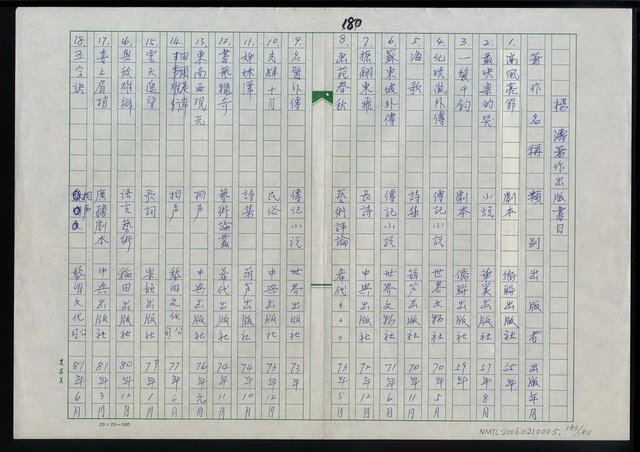 180
楊濤著作出版書目
著作名稱 類別 出版者 出版年月
1. 高風亮節 劇本 僑聯出版社 55年
2. 最快樂的哭 小說 出版社 57年8月
3. 一髮千鈞 劇本 僑聯出版社 59年
4. 化曉風外傳 傳記小說 世界文物社 70年5月
5. 海歌 詩集 葫芦出版社 70年11月
6. 蘇東坡外傳 傳記小說 世界文物社 71年6月
7. 振翮東飛 長詩 中興出版社 72年12月
8. 出苑春秋 藝術評論 73年5月
9. 名醫外傳 傳記小說 世界出版社 73年
10. 先嬪十月 民俗 中興出版社 73年12月
11. 姊妹潭 詩集 葫芦出版社 74年10月
12. 書藝獵奇 藝術論叢 出版社 74年11月
13. 東南西觀光 相声 中興出版社 76年元月
14. 相声 黎明文化公司 77年6月
15. 雲天遙望 歌詞 樂韻出版社 79年1月
16. 與紋雄辯 語言藝術 稻田出版社 80年12月
17. 喜上眉梢 廣播劇本 中興出版社 81年3月
18. 五字訣 相声 黎明文化公司 81年6月
20×25=500
NMTL20060210005.
183/184